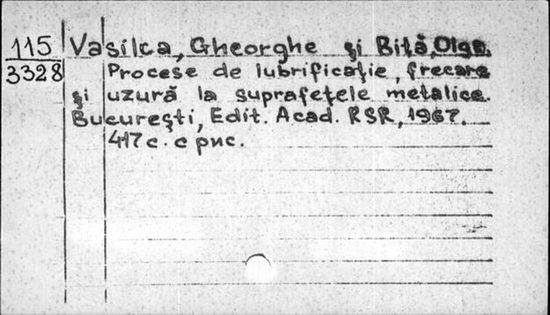 115
3328
Vasilca, Gheorghe și Biță, Olga.
Procese de lubrificație, frecare
și uzură la suprafețele metalice.
București, Edit. Acad. RSR, 1967.
417 c. c рис.